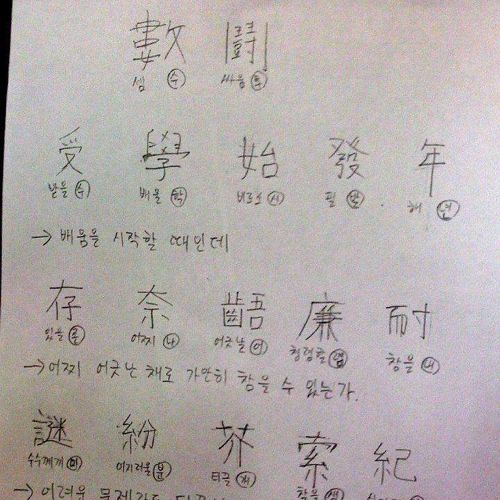 數 鬪
셈 수 싸움 투
受 學 始 發 年
받을 수 배울 학 비로소 시 필 발 해 년
→ 배움을 시작할 때인데
存 奈 齬 廉 耐
있을 존 어찌 나 어긋날 어 청렴할 염 참을 내
→ 어찌 어긋난 채로 가만히 참을 수 있는가.
謎 紛 芥 索 紀
수수께끼 미 어지러울 분 티끌 개 찾을
→ 어려운 문제라도